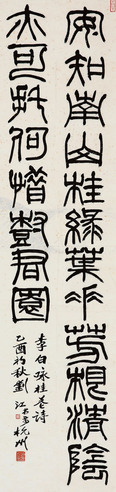 安知南山桂綠葉垂芳根清陰
亦可託何惜樹君園
李白咏桂之詩
乙酉初秋劉江书於杭州